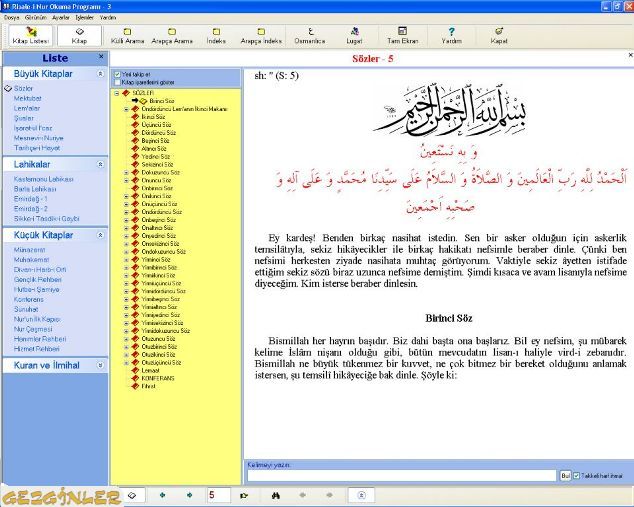 Risale-i Nur Okuma Programı - 3
Dosya Görünüm Ayarlar İşlemler Yardım
Kitap Listesi Kitap Külli Arama Arapça Arama İndeks Arapça İndeks Osmanlıca Lugat Tam Ekran Yardım Kapat
Liste
Büyük Kitaplar
Sözler
Mektubat
Lem'alar
Şualar
İşarat-ül İ'caz
Mesnevi-i Nuriye
Tarihçe-i Hayat
Lahikalar
Kastamonu Lahikası
Barla Lahikası
Emirdağ - 1
Emirdağ - 2
Sikke-i Tasdik-i Gaybi
Küçük Kitaplar
Münazarat
Muhakemat
Divan-ı Harb-i Örfi
Gençlik Rehberi
Hutbe-i Şamiye
Konferans
Sünuhat
Nur'un İlk Kapısı
Nur Çeşmesi
Hanımlar Rehberi
Hizmet Rehberi
Kuran ve İlmihal
Yeri takip et
Kitap işaretlerini göster
SÖZLER
Birinci Söz
Ondördüncü Lem'anın İkinci Makamı
İkinci Söz
Üçüncü Söz
Dördüncü Söz
Beşinci Söz
Altıncı Söz
Yedinci Söz
Sekizinci Söz
Dokuzuncu Söz
Onuncu Söz
Onbirinci Söz
Onikinci Söz
Onüçüncü Söz
Ondördüncü Söz
Onbeşinci Söz
Onaltıncı Söz
Onyedinci Söz
Onsekizinci Söz
Ondokuzuncu Söz
Yirminci Söz
Yirmibirinci Söz
Yirmiikinci Söz
Yirmiüçüncü Söz
Yirmidördüncü Söz
Yirmibeşinci Söz
Yirmialtıncı Söz
Yirmiyedinci Söz
Yirmisekizinci Söz
Yirmidokuzuncu Söz
Otuzuncu Söz
Otuzbirinci Söz
Otuzikinci Söz
Otuzüçüncü Söz
Lemaat
KONFERANS
Fihrist
Sözler - 5
sh: " (S: 5)
بِسْمِ اللّٰهِ الرَّحْمٰنِ الرَّحِيمِ
وَ بِهِ نَسْتَعِينُ
اَلْحَمْدُ لِلّٰهِ رَبِّ الْعَالَمِينَ وَ الصَّلاَةُ وَ السَّلاَمُ عَلَى سَيِّدِنَا مُحَمَّدٍ وَ عَلَى آلِهِ وَ
صَحْبِهِ اَجْمَعِينَ
Ey kardeş! Benden birkaç nasihat istedin. Sen bir asker olduğun için askerlik
temsilâtıyla, sekiz hikâyecikler ile birkaç hakikatı nefsimle beraber dinle. Çünki ben
nefsimi herkesten ziyade nasihata muhtaç görüyorum. Vaktiyle sekiz âyetten istifade
ettiğim sekiz sözü biraz uzunca nefsime demiştim. Şimdi kısaca ve avam lisanıyla nefsime
diyeceğim. Kim isterse beraber dinlesin.
Birinci Söz
Bismillah her hayrın başıdır. Biz dahi başta ona başlarız. Bil ey nefsim, şu mübarek
kelime İslâm nişanı olduğu gibi, bütün mevcudatın lisan-ı haliyle vird-i zebanıdır.
Bismillah ne büyük tükenmez bir kuvvet, ne çok bitmez bir bereket olduğunu anlamak
istersen, şu temsilî hikâyeciğe bak dinle. Şöyle ki:
Kelimeyi yazın:
Bul
5
GEZGİNLER